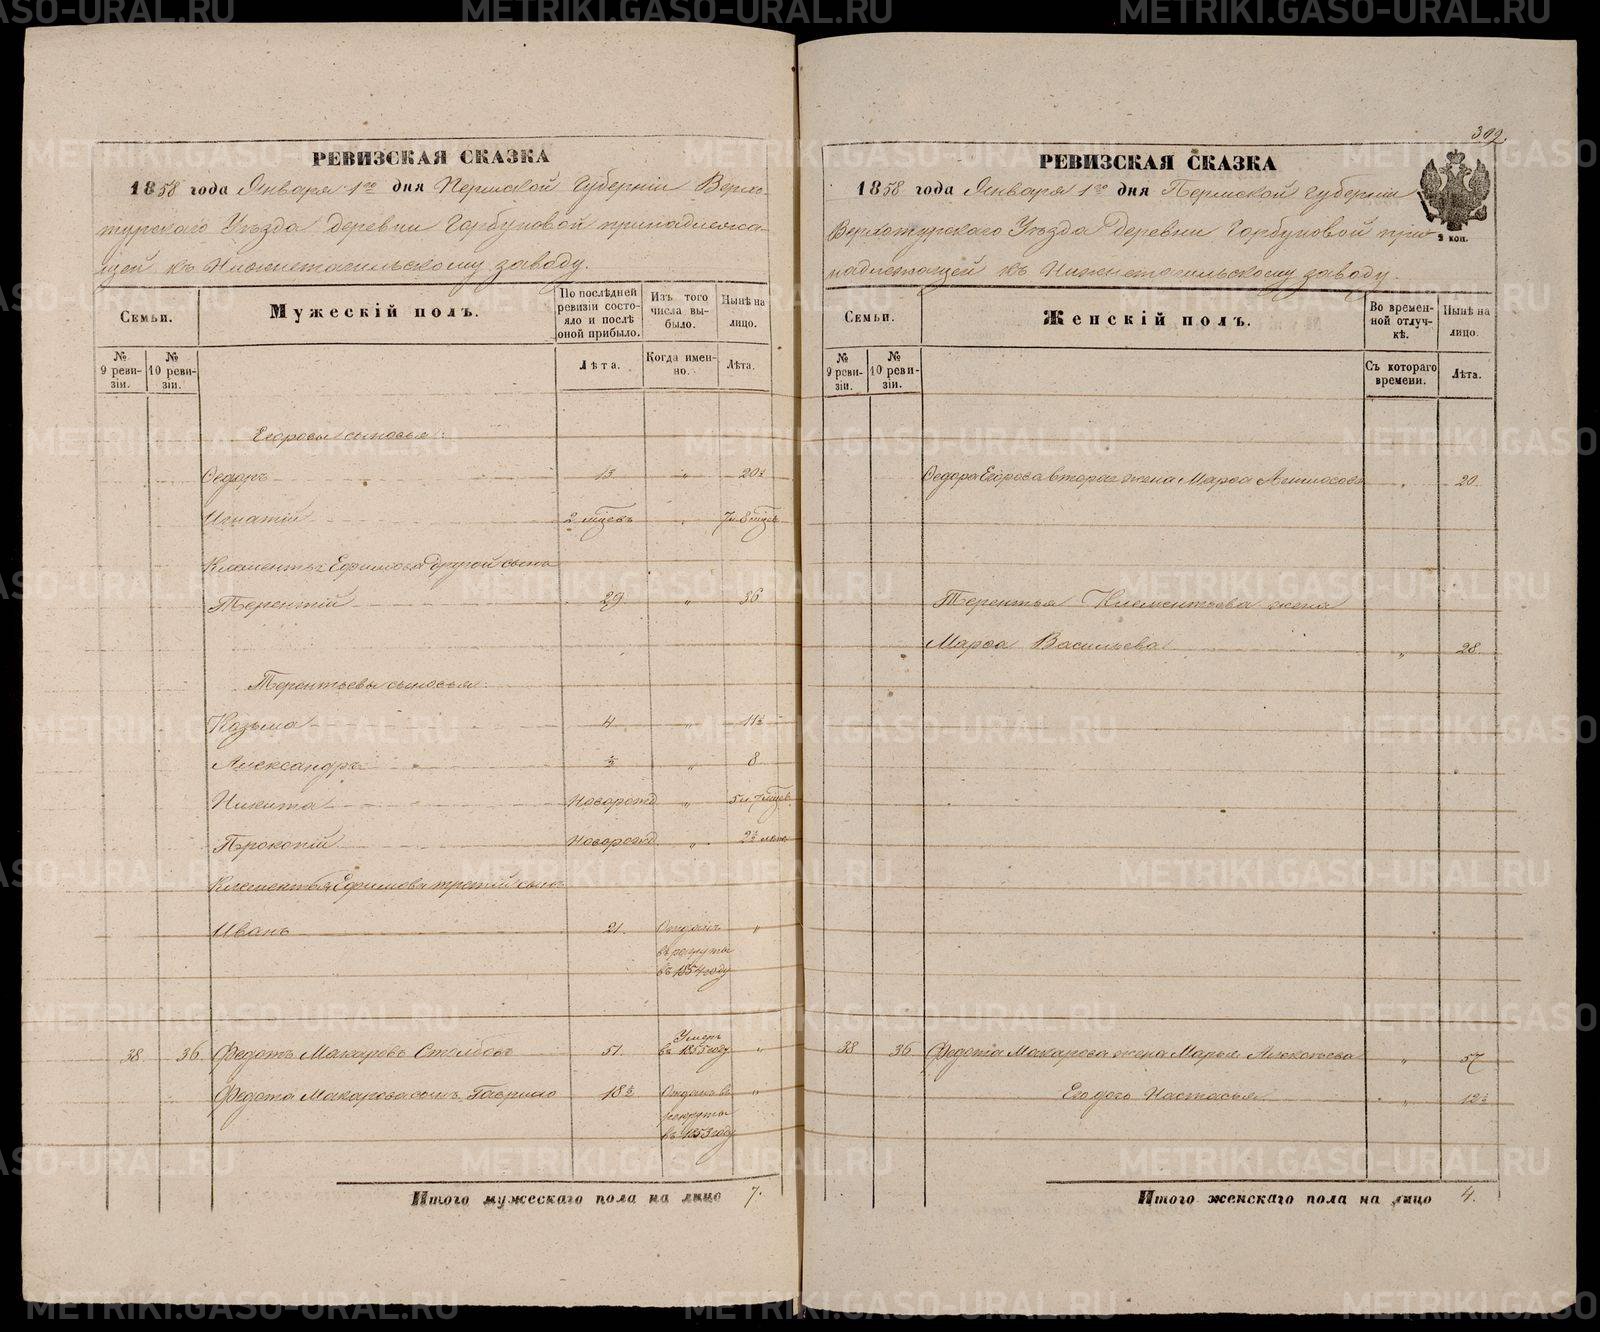 РЕВИЗСКАЯ СКАЗКА
1858 года Января 1го дня Пермской Губернiи Верхо-
турскаго Уѣзда деревни Горбуновой принадлежа-
щей къ Нижнетагильскому заводу.
Семьи.
Мужескiй полъ.
По послѣдней ревизiи состо-
яло и послѣ оной прибыло.
Изъ того числа вы-
было.
Нынѣ на лицо.
№ 9 реви-
зiи.
№ 10 реви-
зiи.
Лѣта.
Когда имен-
но.
Лѣта.
Егоровы сыновья:
Ѳедоръ 13 " 20½
Игнатiй 2 мцевъ " 7 и 8 мцев
Климентья Ефимова другой сынъ
Терентiй 29 " 36
Терентьевы сыновья:
Козьма 4 " 11½
Александръ ½ " 8
Никита Новорожд " 5 и 7 мцев
Прокопiй Новорожд " 2½
Климентья Ефимова третiй сынъ
Иванъ 21. Отданъ въ рекруты въ 1854 году "
38. 36. Ѳедотъ Макаровъ 51. Умеръ въ 1855 году "
Ѳедота Макарова сынъ Гаврило 18½ Отданъ въ рекруты въ 1853 году "
Итого мужескаго пола на лицо 7.
309.
РЕВИЗСКАЯ СКАЗКА
1858 года Января 1го дня Пермской Губернiи
Верхотурскаго Уѣзда Деревни Горбуновой при-
надлежащей къ Нижнетагильскому заводу.
2 коп.
Семьи.
Женскiй полъ.
Во времен-
ной отлуч-
кѣ.
Нынѣ на лицо.
№ 9 реви-
зiи.
№ 10 реви-
зiи.
Съ котораго времени.
Лѣта.
Ѳедора Егорова вторая жена Марѳа " 20
Терентья Климентьева жена
Марѳа Васильева " 28.
38 36 Ѳедота Макарова жена Марья Алексѣева " 57
Его дочь Настасья " 12½
Итого женскаго пола на лицо 4.
METRIKI.GASO-URAL.RU